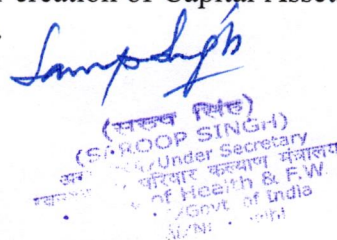 creation of Capital Asset
(सरूप सिंह)
(SAROOP SINGH)
/Under Secretary
परिवार कल्याण मंत्रालय
of Health & F.W.
/Govt of India